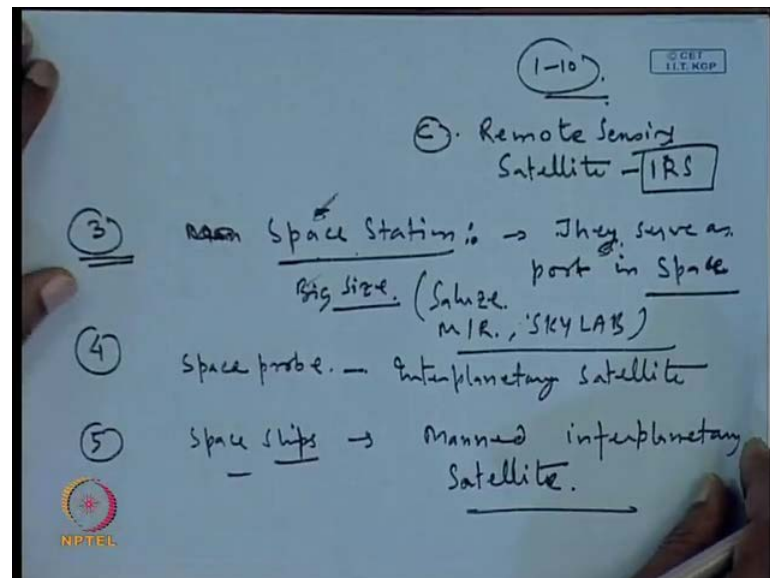 1-10.
© CET
I.I.T. KGP
C. Remote Sensing
Satellite - IRS
3 Space Station: → They serve as
port in Space
Big Size. (Saluze.
MIR., SKYLAB)
4 Space probe. - Interplanetary Satellite
5 Space Ships → Manned interplanetary
Satellite.
NPTEL